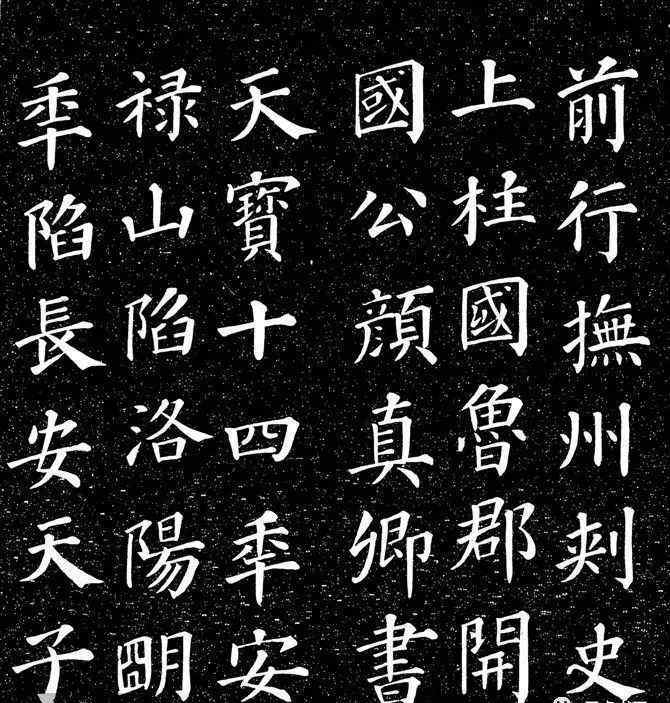 前行撫州刺史
上柱國魯郡開
國公顔真卿書
天寶十四秊安
禄山陷洛陽朙
秊陷長安天子